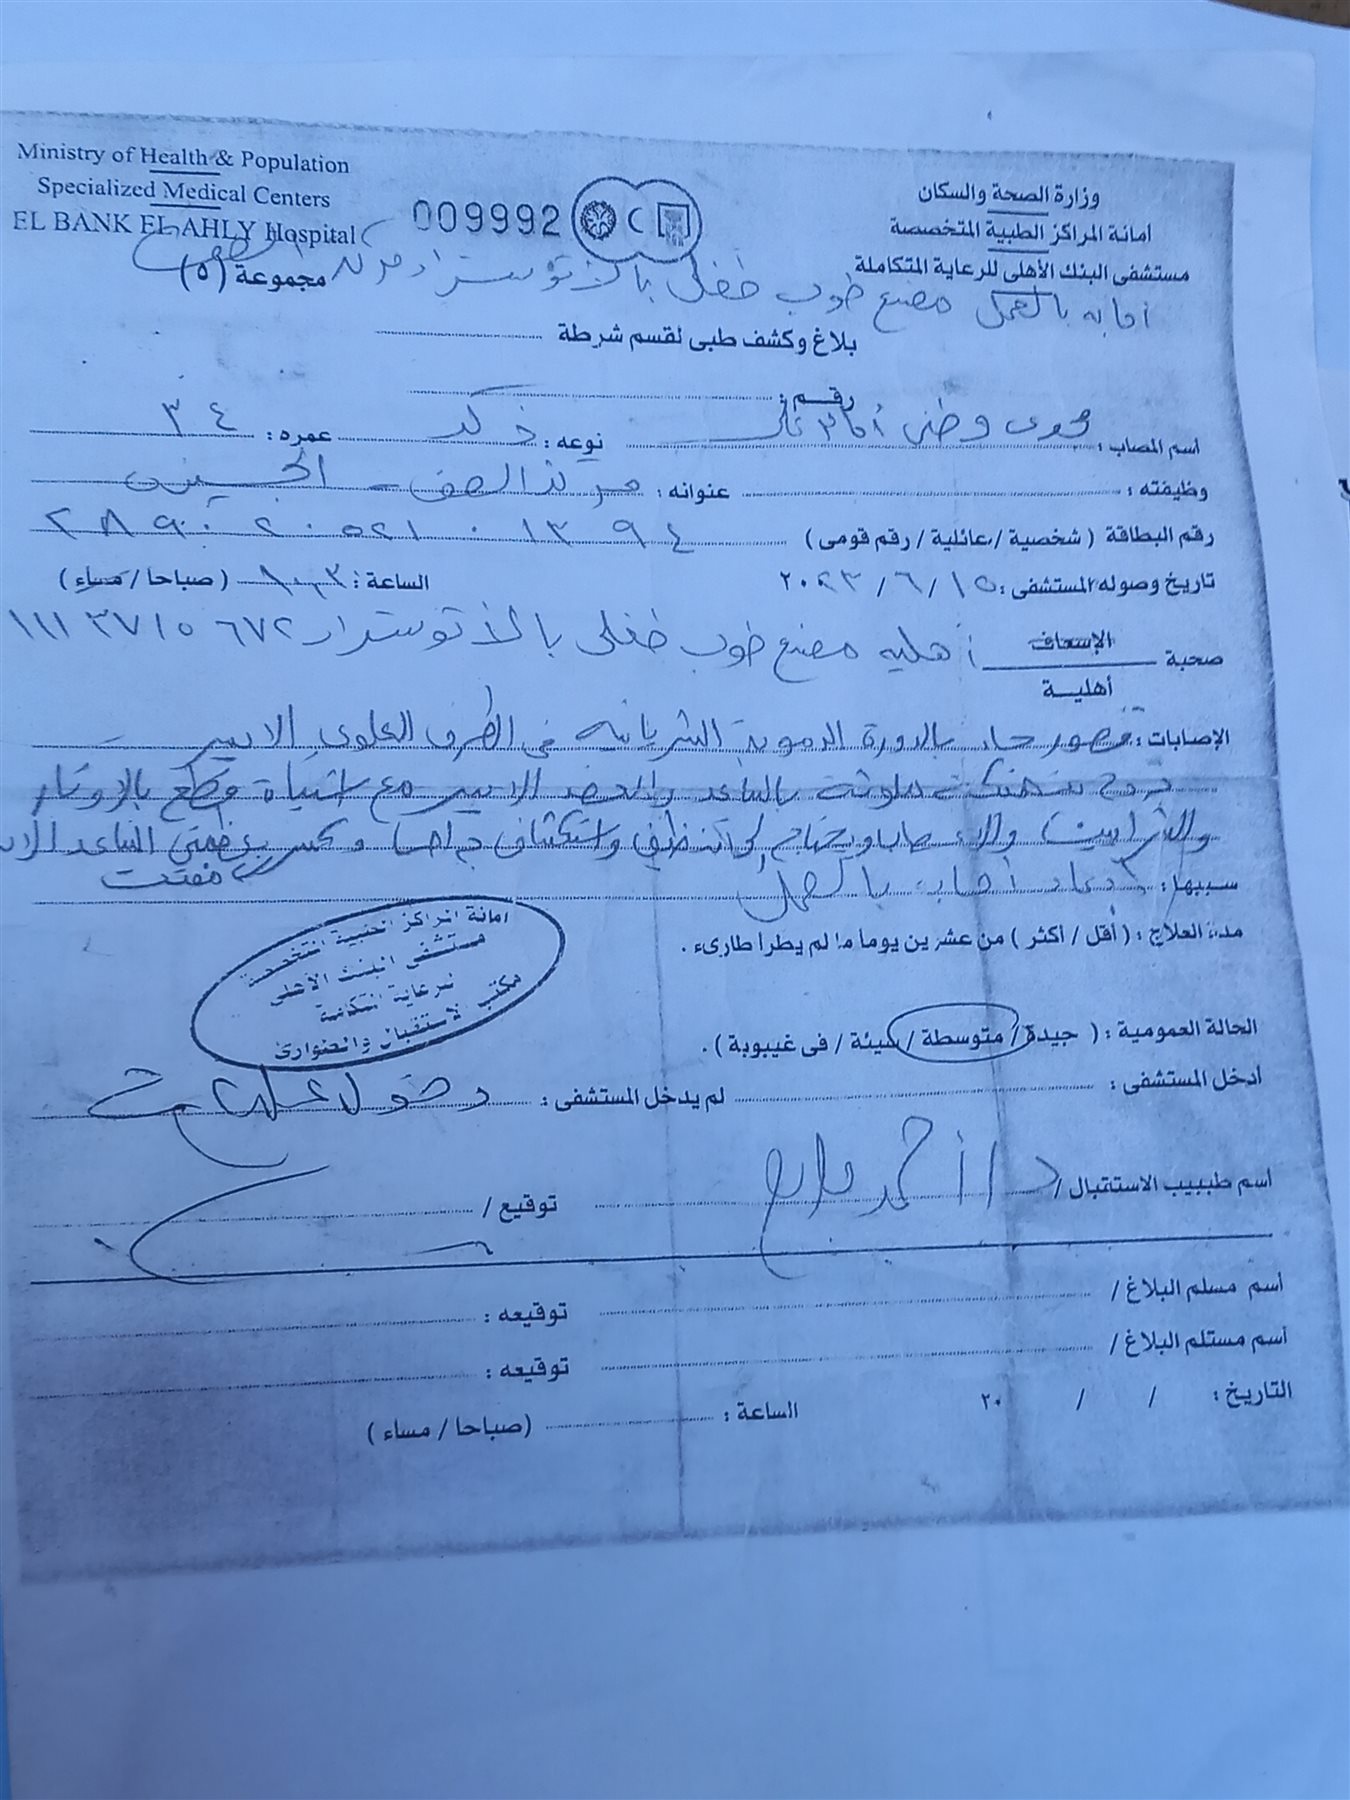 Ministry of Health & Population
Specialized Medical Centers
EL BANK EL AHLY Hospital
009992
وزارة الصحة والسكان
امانة المراكز الطبية المتخصصة
مستشفى البنك الأهلى للرعاية المتكاملة
مجموعة (٥)
اصابه بالعمل مصنع طوب طفلى بالاتوستراد
بلاغ وكشف طبى لقسم شرطة
رقم :
اسم المصاب : وطنى نوعه : ذكر عمره : ٣٤
وظيفته : عنوانه : مركز الصف -
رقم البطاقة ( شخصية / عائلية / رقم قومى ) ٢٨٩٠٢٠٥٢١٠١٣٩٤
تاريخ وصوله المستشفى : ١٥ / ٦ / ٢٠٢٣ الساعة : ( صباحا / مساء )
صحبة الإسعاف / أهلية : أهليه مصنع طوب طفلى بالاتوستراد ١١١٣٧١٥٦٧٢
الإصابات : قصور حاد بالدورة الدموية الشريانيه فى الطرف العلوى الايسر
جرح متهتك ملوثة بالساعد والعضد الايسر مع اشتباة قطع بالاوتار
والشرايين والاعصاب ويحتاج الى تنظيف واستكشاف جراحى وكسر بعظمتى الساعد
مفتت
سببها : ادعاء اصابه بالعمل
مدة العلاج : ( أقل / أكثر ) من عشرين يوما ما لم يطرا طارىء .
امانة المراكز الطبية المتخصصة
مستشفى البنك الأهلى
للرعاية المتكاملة
مكتب الاستقبال والطوارئ
الحالة العمومية : ( جيدة / متوسطة / سيئة / فى غيبوبة ) .
أدخل المستشفى : لم يدخل المستشفى :
اسم طبيب الاستقبال / د / أحمد توقيع /
أسم مسلم البلاغ / توقيعه :
أسم مستلم البلاغ / توقيعه :
التاريخ : / / ٢٠ الساعة : (صباحا / مساء )